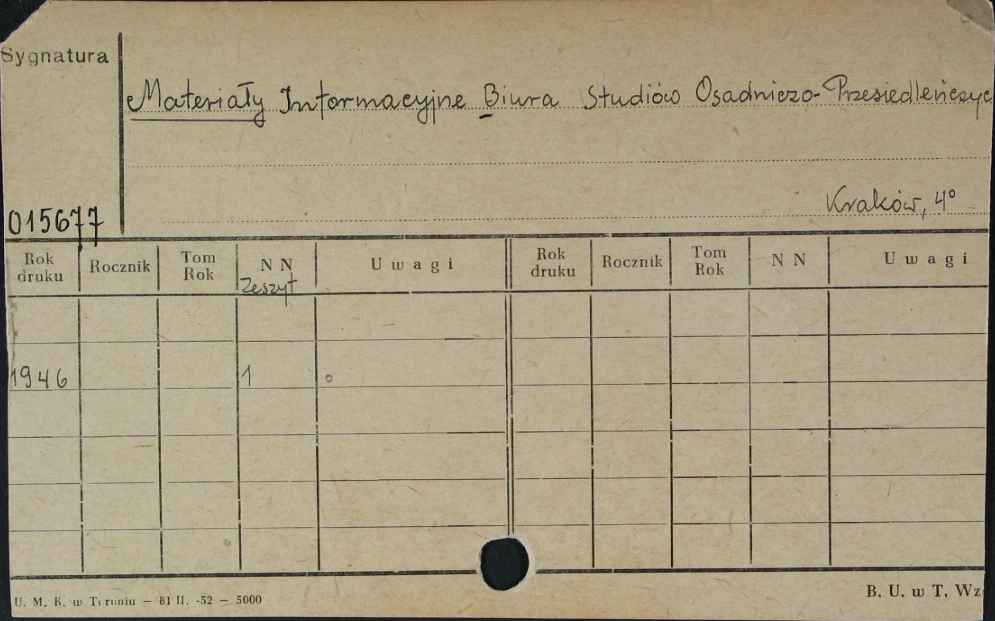 Sygnatura
Materiały Informacyjne Biura Studiów Osadniczo-Przesiedleńczyc
Kraków, 4°
015677
Rok druku Rocznik Tom Rok N N Uwagi Rok druku Rocznik Tom Rok N N Uwagi
Zeszyt
1946 1 °
U. M. K. w Toruniu — 81 II. -52 — 5000
B. U. w T. Wz